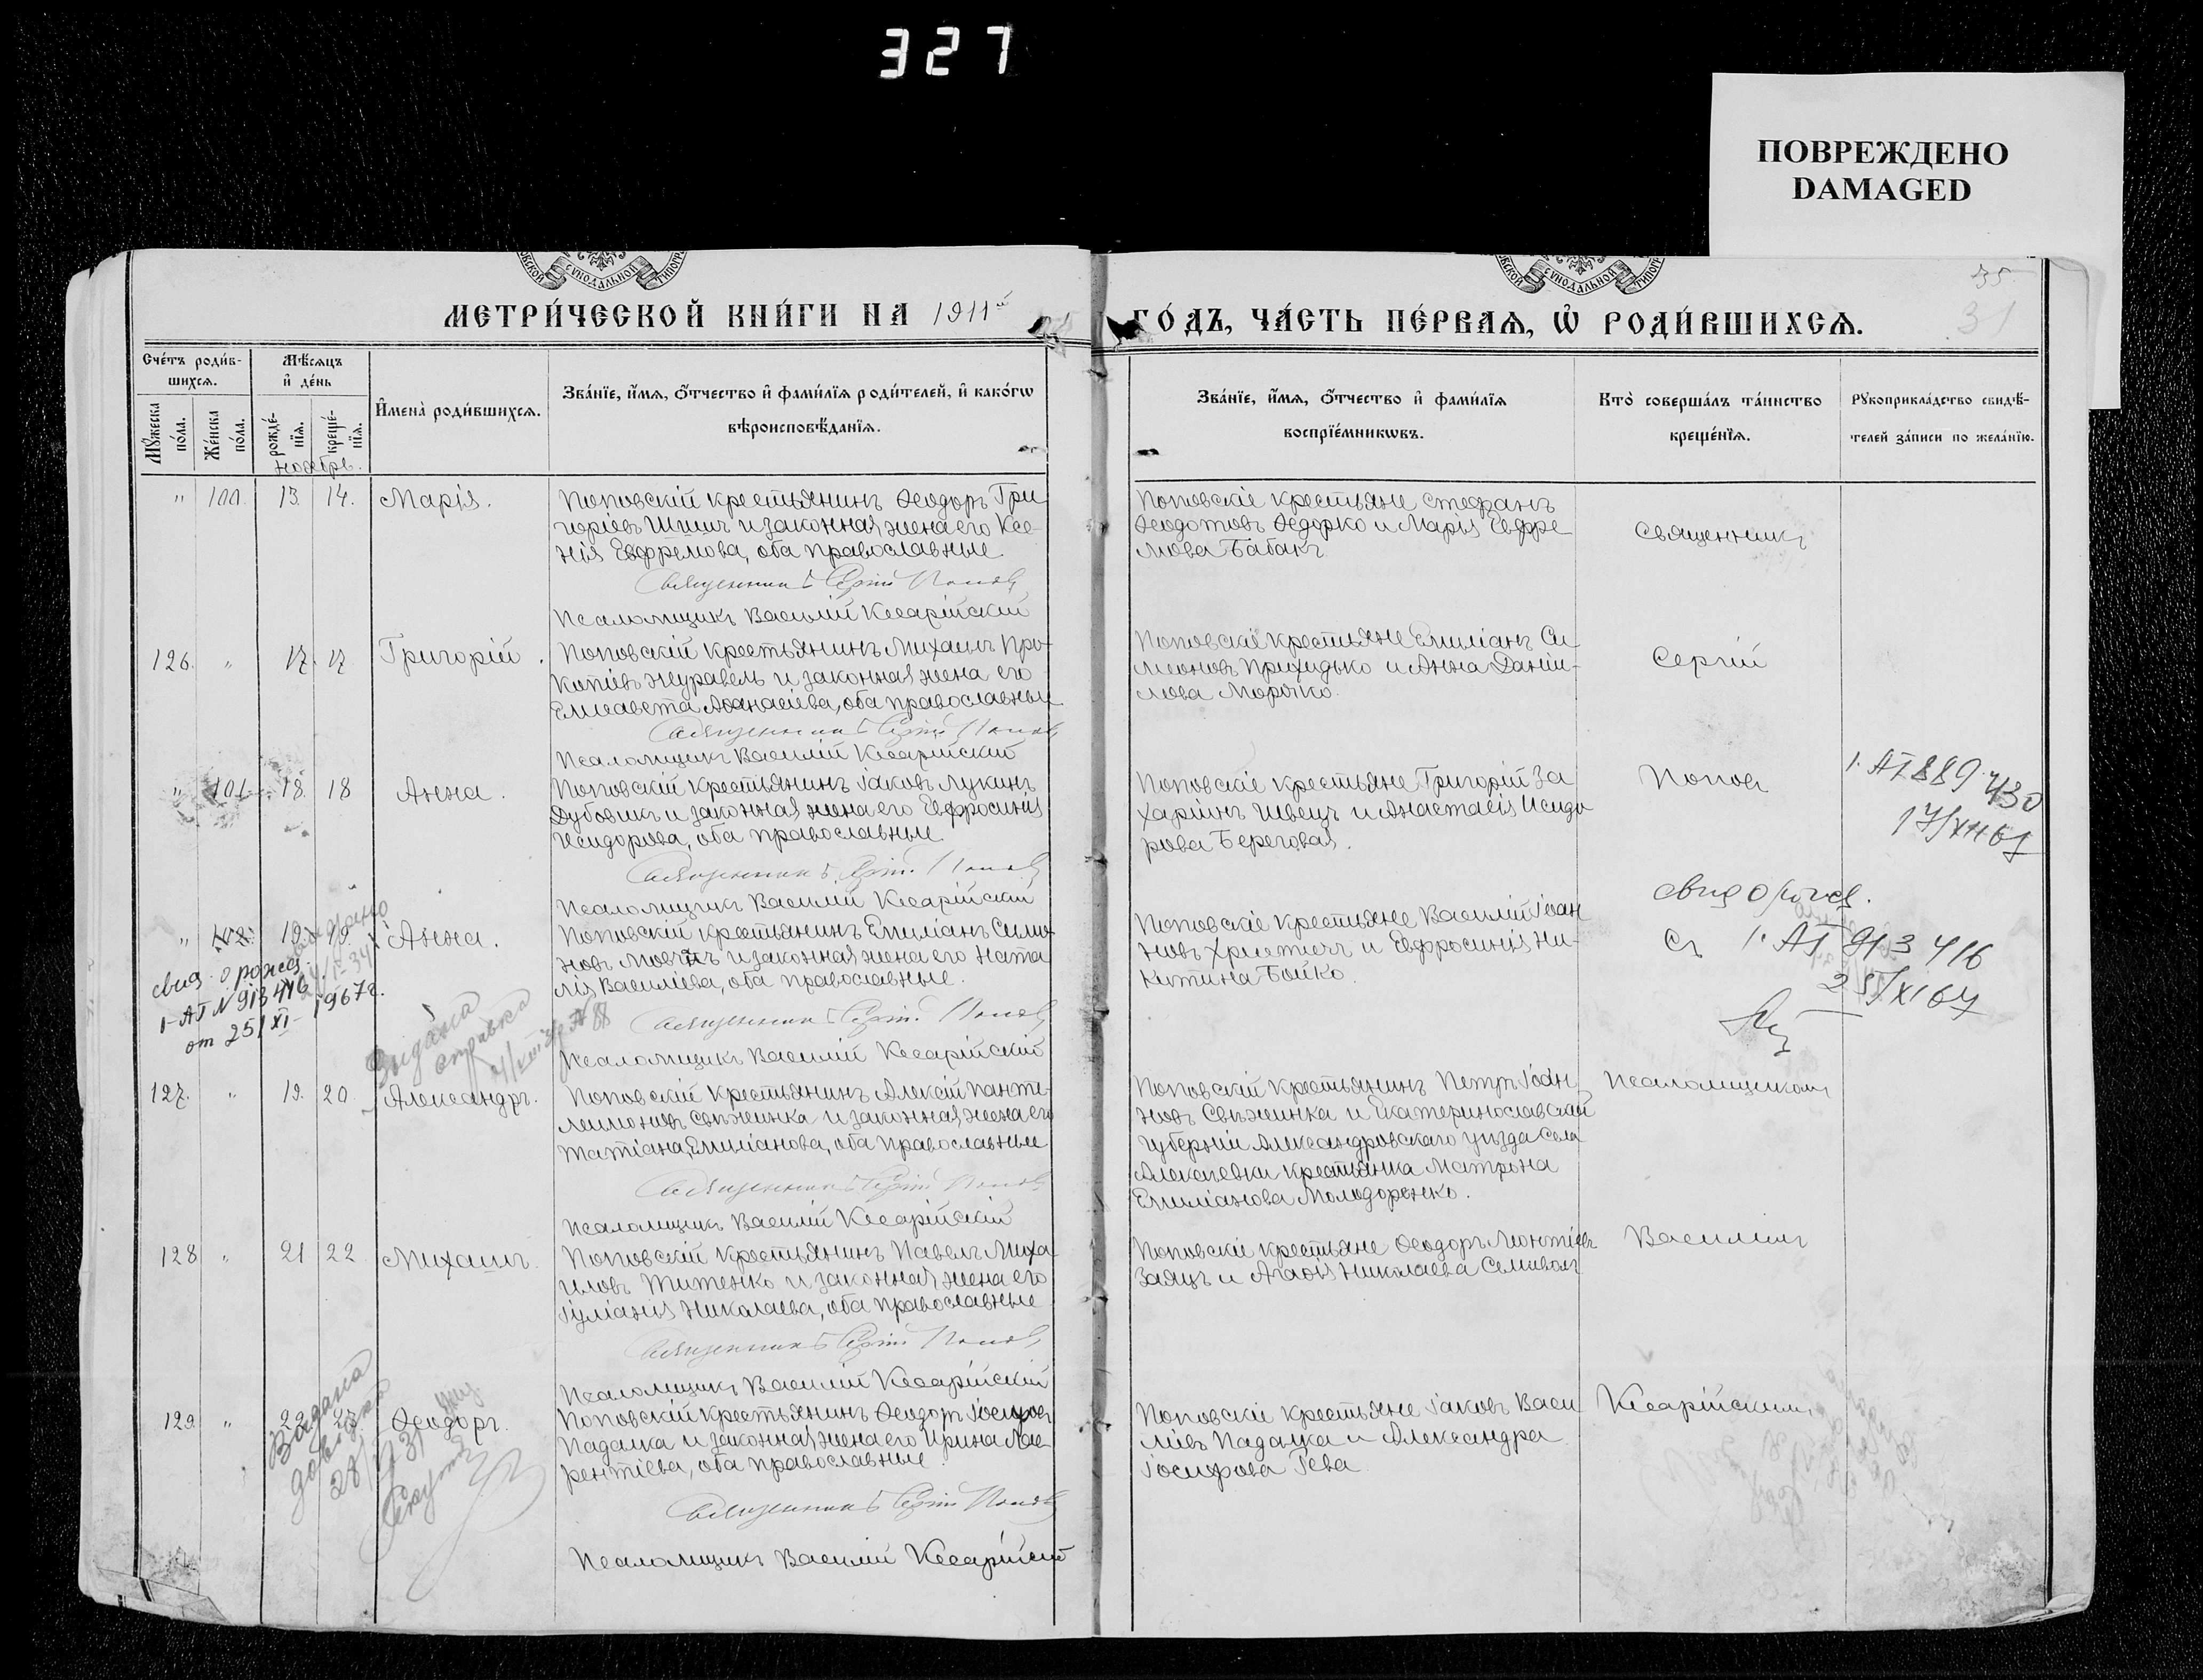 327
ПОВРЕЖДЕНО
DAMAGED
МЕТРИ́ЧЕСКОЙ КНИ́ГИ НА 1911й
ГО́ДЪ, ЧА́СТЬ ПЕ́РВАѦ, Ѡ҆ РОДИ́ВШИХСѦ.
35
31
Сче́тъ роди́в-
шихсѧ.
Мѣ́сѧцъ
и҆ де́нь
Мꙋ́жеска
по́ла.
Же́нска
по́ла.
рожде́-
нїѧ.
креще́-
нїѧ.
И҆мена̀ роди́вшихсѧ.
Зва́нїе, и҆́мѧ, ѻ҆́тчество и҆ фами́лїѧ роди́телей, и҆ како́гѡ
вѣроисповѣ́данїѧ.
Зва́нїе, и҆́мѧ, ѻ҆́тчество и҆ фами́лїѧ
воспрїе́мникѡвъ.
Кто̀ соверша́лъ та́инство
креще́нїѧ.
Рꙋкоприкла́дство свидѣ́-
телей за́писи по жела́нїю.
Ноябрь.
" 100. 13. 14. Марія.
Поповскій крестьянинъ Ѳеодоръ Гри
горіевъ Шишъ и законная жена его Ксе-
нія Евфремова, оба православные
Священникъ Сергій Поповъ
Псаломщикъ Василій Кесарійскій
Поповскіе крестьяне Стефанъ
Ѳеодотовъ Ѳедорко и Марія Евфре
мова Бабакъ
Священникъ
126. " 17. 17 Григорій.
Поповскій крестьянинъ Михаилъ Про-
копіевъ Журавель и законная жена его
Елисавета Аѳанасіева, оба православные
Священникъ Сергій Поповъ
Псаломщикъ Василій Кесарійскій
Поповскіе крестьяне Емиліанъ Си
меоновъ Прихидько и Анна Даніи-
лова Морочко.
Сергій
" 101. 18. 18 Анна.
Поповскій крестьянинъ Іаковъ Лукинъ
Дубовикъ и законная жена его Евфросинія
Исидорова, оба православные
Священникъ Сергій Поповъ
Псаломщикъ Василій Кесарійскій
Поповскіе крестьяне Григорій За
харіинъ Швецъ и Анастасія Исидо
рова Береговая.
Поповъ
1. АТ 889 430
17/XII 67
" 102. 19. 19. Анна.
Поповскій крестьянинъ Емиліанъ Симо
новъ и законная жена его Ната
лія Василіева, оба православные.
Священникъ Сергій Поповъ
Псаломщикъ Василій Кесарійскій
Поповскіе крестьяне Василій Іоан
новъ Христичъ и Евфросинія Ни-
китина Бойко
1. АТ 913 416
25/XI 67
свид. о рожд.
1-АТ № 913416
от 25/XI-1967г.
Видана
справка
127. " 19. 20. Александръ.
Поповскій крестьянинъ Алексій Панте-
леимоновъ Свѣжинка и законная жена его
Татіана Емиліанова, оба православные
Священникъ Сергій Поповъ
Псаломщикъ Василій Кесарійскій
Поповскій крестьянинъ Петръ Іоан
новъ Свѣжинка и Екатеринославской
губерніи Александровскаго уѣзда села
Алексѣевки крестьянка Матрона
Емиліанова Молодоренко.
Псаломщикомъ
128 " 21 22 Михаилъ.
Поповскій крестьянинъ Павелъ Миха
иловъ Титенко и законная жена его
Іуліанія Николаева, оба православные
Священникъ Сергій Поповъ
Псаломщикъ Василій Кесарійскій
Поповскіе крестьяне Ѳеодоръ Леонтіевъ
Заяцъ и Агафія Николаева Семиволъ
Василіемъ
129. " 22 23 Ѳеодоръ.
Поповскій крестьянинъ Ѳеодоръ Іосифовъ
Падалка и законная жена его Ирина Лав
рентіева, оба православные.
Священникъ Сергій Поповъ
Псаломщикъ Василій Кесарійскій
Поповскіе крестьяне Іаковъ Васи
ліевъ Падалка и Александра
Іосифова Гева
Кесарійскимъ
Видана
довідка